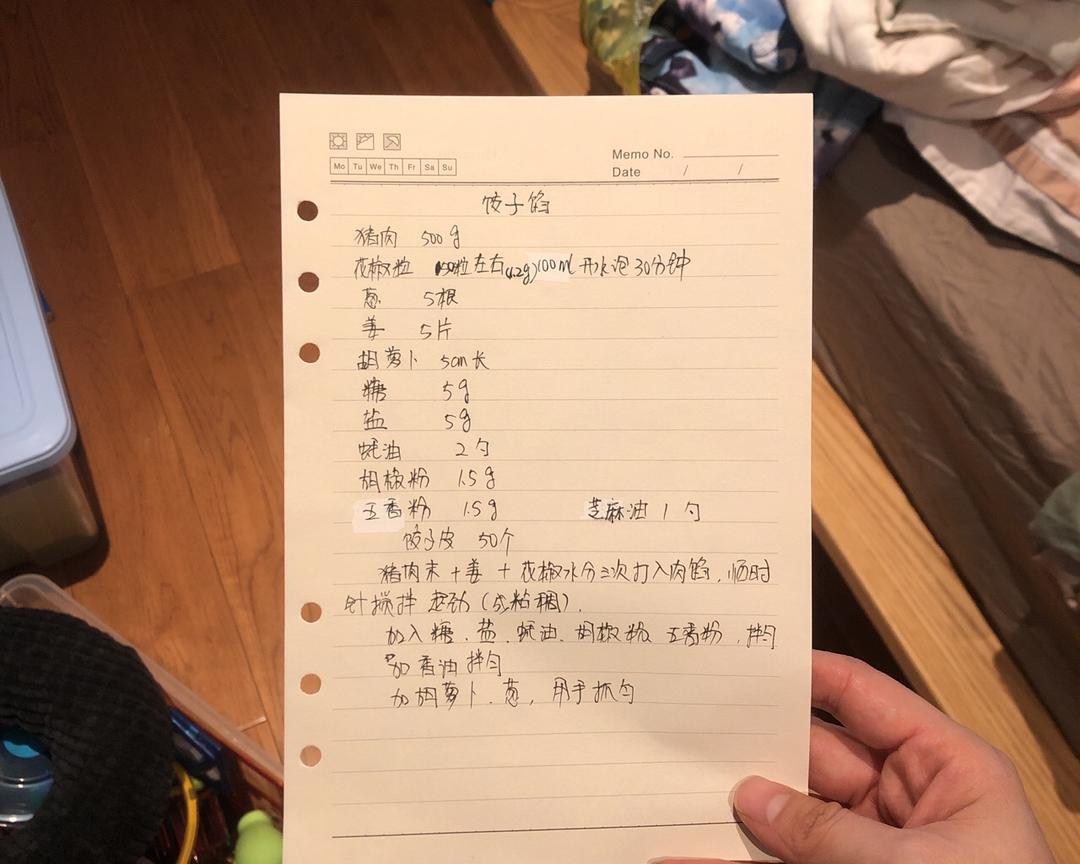 Memo No.
Mo Tu We Th Fr Sa Su
Date / /
饺子馅
猪肉 500g
花椒粒 150粒左右(1.2g)100ml开水泡30分钟
葱 5根
姜 5片
胡萝卜 5cm长
糖 5g
盐 5g
蚝油 2勺
胡椒粉 1.5g
五香粉 1.5g 芝麻油 1勺
饺子皮 50个
猪肉末+姜+花椒水分三次打入肉馅,顺时
针搅拌起劲(成粘稠).
加入糖.盐.蚝油.胡椒粉.五香粉.拌匀
加香油拌匀
加胡萝卜.葱,用手抓匀